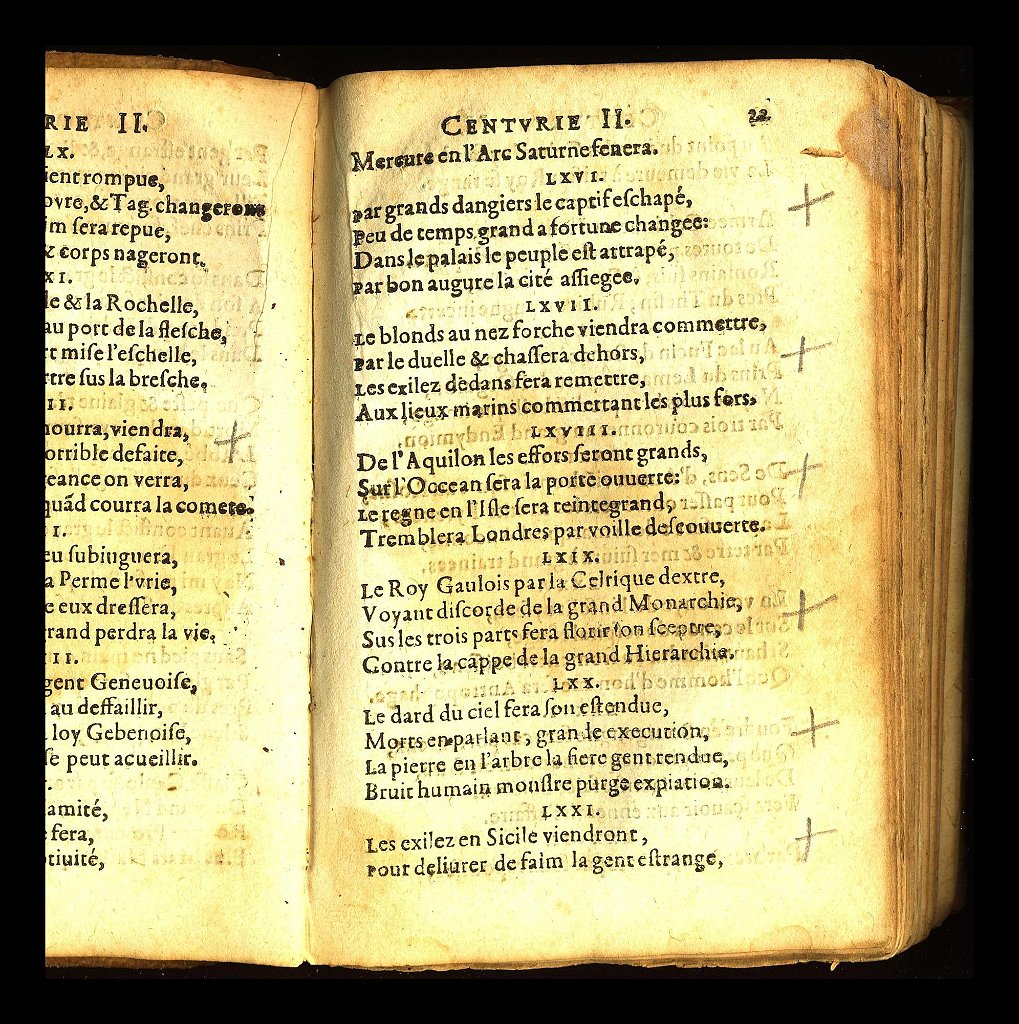 RIE II.
LX.
ient rompue,
ovre,& Tag. changerons
im sera repue,
& corps nageront.
XI.
le & la Rochelle,
au port de la flesche,
rt mise l'eschelle,
rtre sus la bresche.
II.
mourra, viendra,
orrible defaite,
eance on verra,
quãd courra la comete.
I.
eu subiuguera,
a Perme l'vrie,
e eux dressera,
rand perdra la vie.
II.
gent Geneuoise,
au deffaillir,
loy Gebenoise,
se peut acueillir.
.
lamité,
e fera,
ptiuité,
CENTVRIE II. 22
Mercure en l'Arc Saturne fenera.
LXVI.
Par grands dangiers le captif eschapé,
Peu de temps grand a fortune changee:
Dans le palais le peuple est attrapé,
Par bon augure la cité assiegee.
LXVII.
Le blonds au nez forche viendra commettre,
Par le duelle & chassera dehors,
Les exilez dedans fera remettre,
Aux lieux marins commettant les plus fors.
LXVIII.
De l'Aquilon les effors seront grands,
Sur l'Occean sera la porte ouuerte:
Le regne en l'Isle sera reintegrand,
Tremblera Londres par voille descouuerte.
LXIX.
Le Roy Gaulois par la Celtique dextre,
Voyant discorde de la grand Monarchie,
Sus les trois parts fera florir son sceptre,
Contre la cappe de la grand Hierarchie.
LXX.
Le dard du ciel fera son estendue,
Morts en parlant, grande execution,
La pierre en l'arbre la fiere gent rendue,
Bruit humain monstre purge expiation.
LXXI.
Les exilez en Sicile viendront,
Pour deliurer de faim la gent estrange,